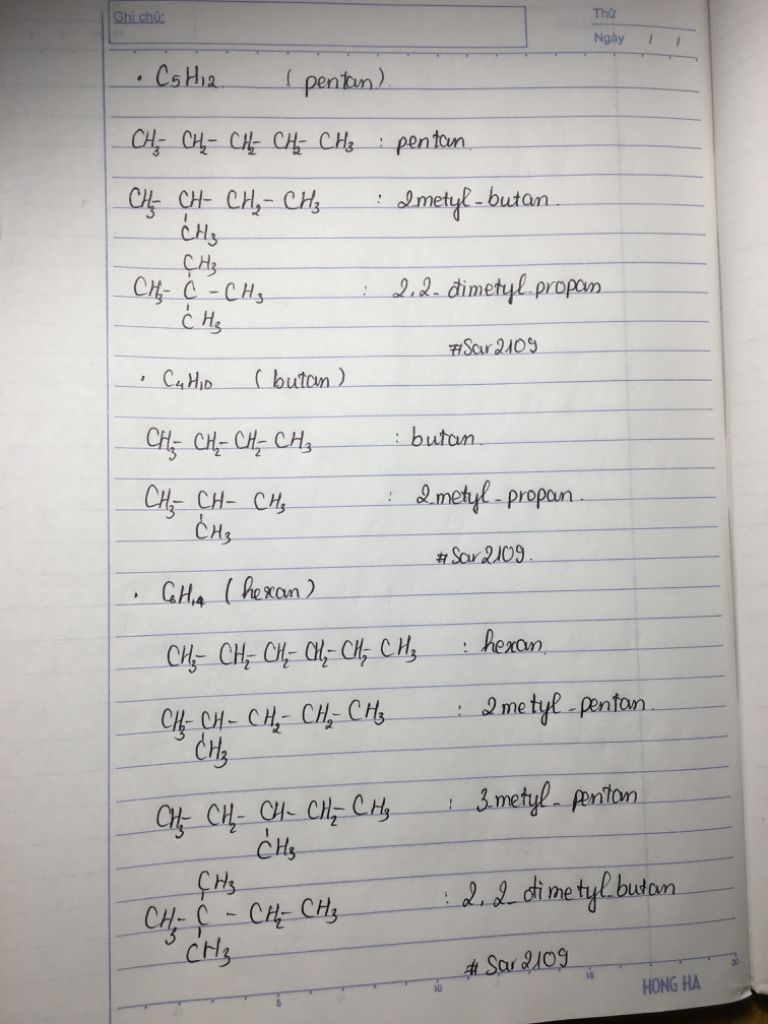 Ghi chú:
Thứ
Ngày / /
• C5H12 (pentan)
CH3- CH2- CH2- CH2- CH3 : pentan
CH3- CH- CH2- CH3 : 2metyl-butan.
CH3
CH3
CH3- C - CH3 : 2,2-đimetyl propan
CH3
#Sar2109
• C4H10 (butan)
CH3- CH2- CH2- CH3 : butan.
CH3- CH- CH3 : 2metyl-propan.
CH3
#Sar2109.
• C6H14 (hexan)
CH3- CH2- CH2- CH2- CH2- CH3 : hexan.
CH3- CH- CH2- CH2- CH3 : 2metyl-pentan.
CH3
CH3- CH2- CH- CH2- CH3 : 3metyl-pentan
CH3
CH3
CH3- C - CH2- CH3 : 2,2-đimetylbutan
CH3
#Sar2109
5 10 15 20
HONG HA